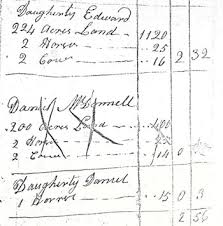 Daugherty Edward
224 Acres Land 1120
2 Horses 25
2 Cows 16 2 32
Daniel McConnell
200 Acres Land 400
2 Horses
2 Cows 14 0
Daugherty Daniel
1 Horse 15 0 3
2 56